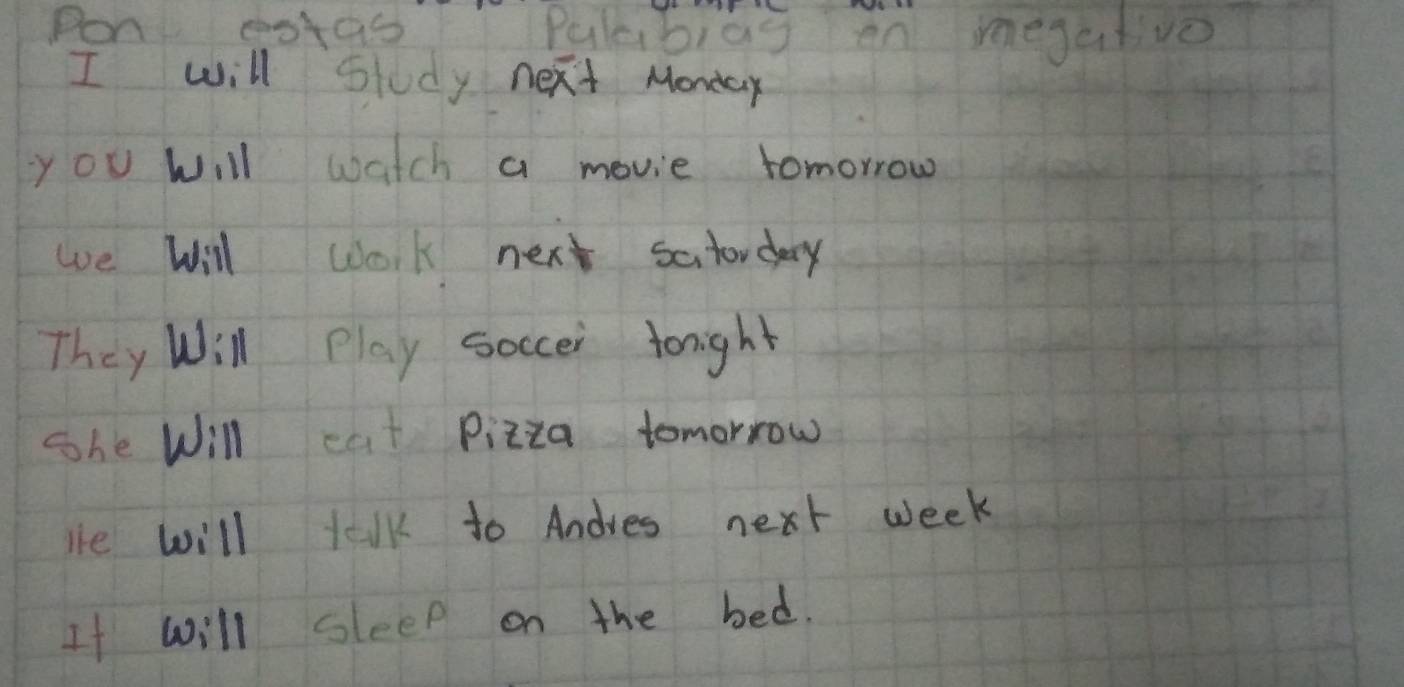 Pon estas Palabras en negativo
I will Study next Monday
you Will watch a movie tomorrow
we Will work next Saturday
They Will Play soccer tonight
She Will eat Pizza tomorrow
He will talk to Andres next week
It will sleep on the bed.